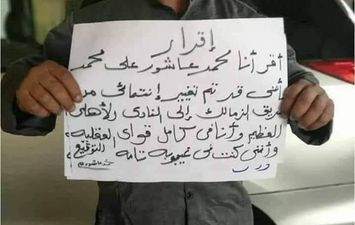 إقرار
أقر أنا محمد عاشور على محمد
أننى قد تم تغيير إنتمائى من
فريق الزمالك إلى النادى الأهلى
العظيم وأنا فى كامل قواى العقلية
وأننى كنت فى غيبوبة تامة
التوقيع